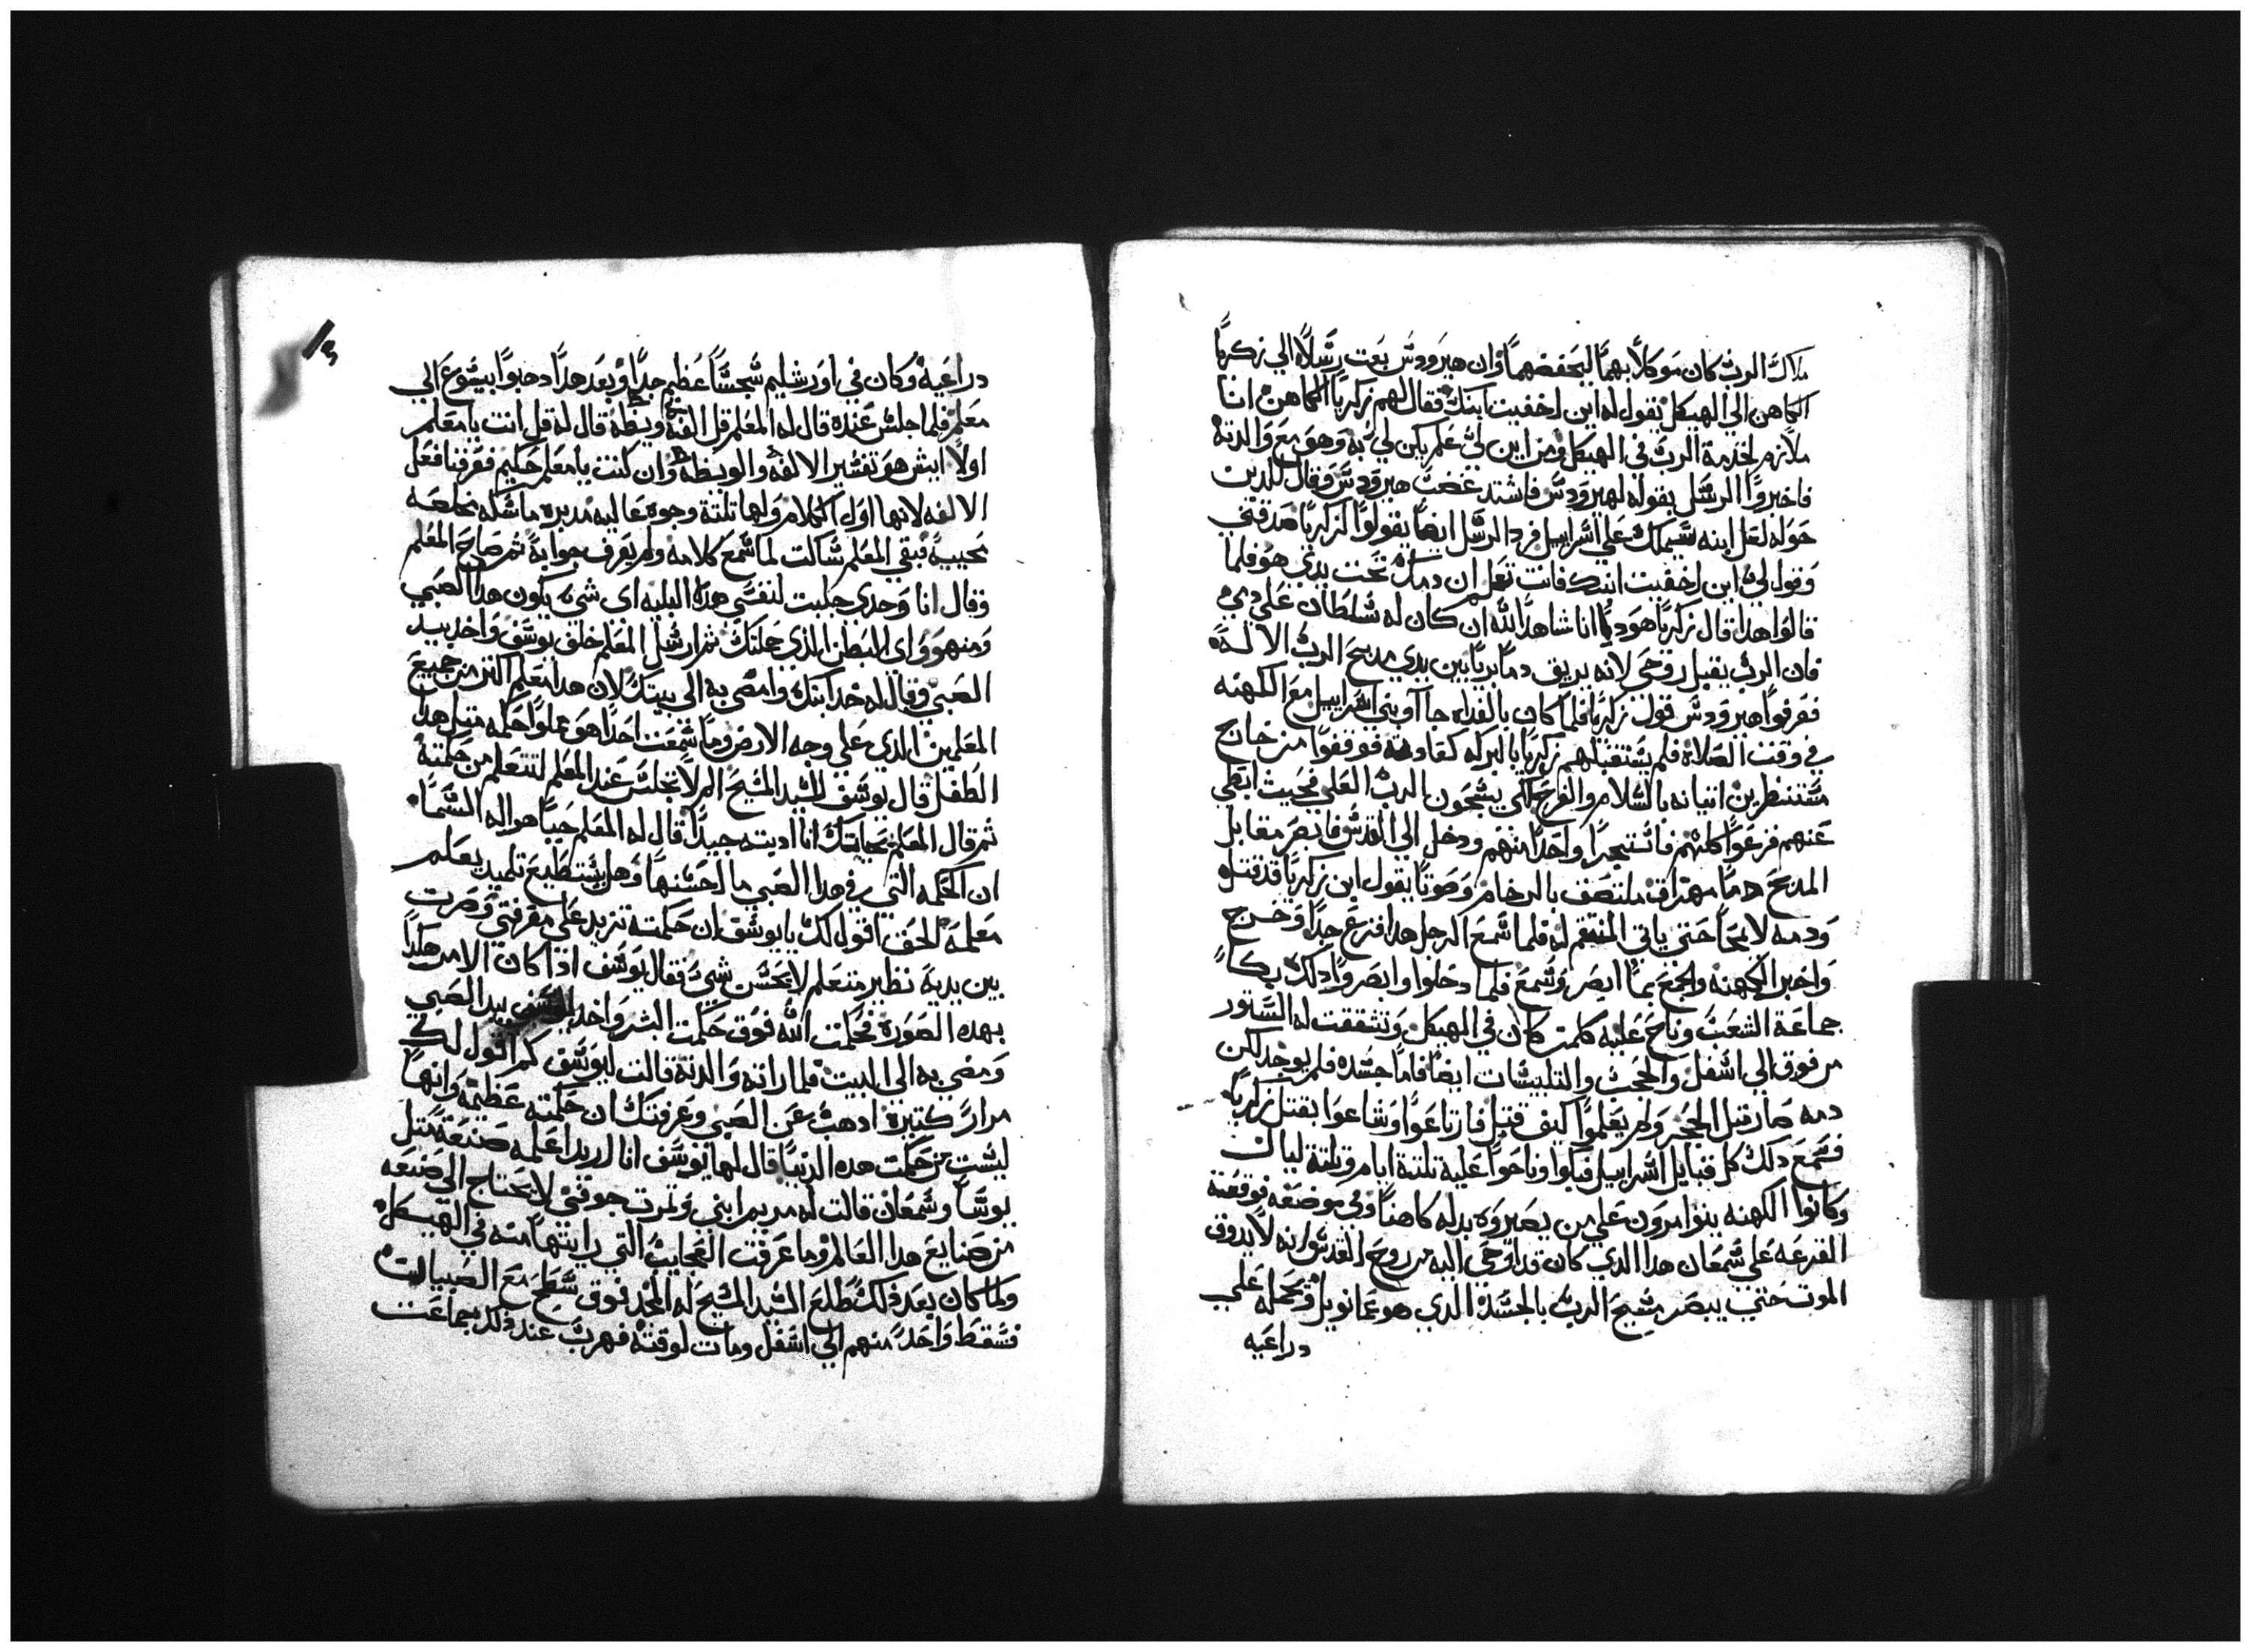 ملاك الرب كان موكلاً بهما ليحفضهما وان هيرودس بعت رسلاً الي زكريا
الكاهن الي الهيكل يقول له اين اخفيت ابنك فقال لهم زكريا الكاهن انا
ملازم لخدمة الرب في الهيكل ومن اين لي علم يكن لي به وهو مع والدته
فاخبروا الرسل بقوله لهيرودس فاشتد غضب هيرودس وقال للدين
حوله لعل ابنه سيملك علي اسراييل فرد الرسل ايضاً يقولوا لزكريا صدقني
وقول لي اين اخفيت ابنك فانت تعلم ان دمك تحت يدي هو فلما
قالوا هدا قال زكريا هودا انا شاهد الله ان كان له سلطان علي دمي
فان الرب يقبل روحي لانه يريق دماً برياً بين يدي مدبح الرب الاله
فعرفوا هيرودس قول زكريا فلما كان بالغداه جاآو بني اسراييل مع الكهنه
في وقت الصلاة فلم يستقبلهم زكريا بالبركه كعادته فوقفوا من خارج
مستنظرين اتيانه بالسلام والفرح لكي يسبحون الرب العلي فحيث ابطي
عنهم فزعوا كلهم فاستجرا واحداً منهم ودخل الي القدس فابصر مقابل
المدبح دماً مهتراق ملتصف بالرخام وصوتاً يقول ابن زكريا قد قتل
ودمه لا يمحا حتي ياتي المنتقم له فلما سمع الرجل هدا فزع جداً وخرج
واخبر الكهنه والجمع بما ابصر وسمع فلما دخلوا وابصروا دلك بكا
جماعة الشعب وناح عليه كلمن كان في الهيكل وتشققت له الستور
من فوق الي اسفل والحجب والتلبيسات ايضاً فاما جسده فلم يوجد لكن
دمه صار متل الحجر ولم يعلموا كيف قتل فارتاعوا وشاعوا بقتل زكريا
فسمع دلك كل قبايل اسراييل فبكوا وناحوا عليه تلتة ايام وتلته ليال
وكانوا الكهنه يتوامرون علي من يصيروه بدله كاهناً وفي موضعه فوقعت
القرعه علي سمعان هدا الدي كان قد اوحي اليه من روح القدس انه لا يدوق
الموت حتي يبصر مسيح الرب بالجسد الدي هو عمانويل ويحمله علي
دراعيه
دراعيه وكان في اورشليم سجساً عظيم جداً وبعد هدا دهبوا بيسوع الي
معلم فلما جلس عنده قال له المعلم قل الفه وبيطه قال له قل انت يا معلم
اولاً ايش هو تفسير الالفه والوبيطه وان كنت يا معلم حكيم فعرفنا فعل
الالفه لانها اول الكلام ولها تلتة وجوه عاليه مدبره ما شكله تخلصه
عجيبه فبقي المعلم ساكت لما سمع كلامه ولم يعرف جوابه ثم صاح المعلم
وقال انا وحدي جلبت لنفسي هده البليه اى شي يكون هدا الصبي
ومنهو واى البطن الدي حملتك ثم ارسل المعلم خلف يوسف واخد بيد
الصبي وقال له خد ابنك وامضي به الي بيتك لان هدا معلم اكتر من جميع
المعلمين الدي علي وجه الارض وما سمعت احداً هو مملوا حكمه متل هدا
الطفل قال يوسف للسيد المسيح الم لا تجلس عند المعلم لنتعلم من حكمته
ثم قال المعلم انا اديته جيداً قال له المعلم حياً هو اله السما
ان الحكمه التي في هدا الصبي ما احسنها وهل يستطيع تلميد يعلم
معلمه الحق اقول لك يا يوسف ان حكمته تزيد علي معرفتي وصرت
بين يديه نظير متعلم لا يحسن شي فقال يوسف ادا كان الامر هكدا
بهده الصوره فحكمت الله فوق حكمت البشر واخد يوسف بيد الصبي
ومضي به الي البيت فلما راته والدته قالت ليوسف كم اقول لك
مراراً كتيره ادهب عن الصبي وعرفتك ان حكمته عظيمه وانها
ليست من حكمت هده الدنيا قال لها يوسف انا اريد اعلمه صنعه متل
يوسا وسمعان قالت له مريم ابني وتمرت جوفي لا يحتاج الي صنعه
من صنايع هدا العالم وما عرفت العجايب التي رايتها منه في الهيكل
ولما كان بعد دلك طلع السيد المسيح له المجد فوق سطح مع الصبيان
فسقط واحد منهم الي اسفل ومات لوقته فهرب عند دلك جماعت